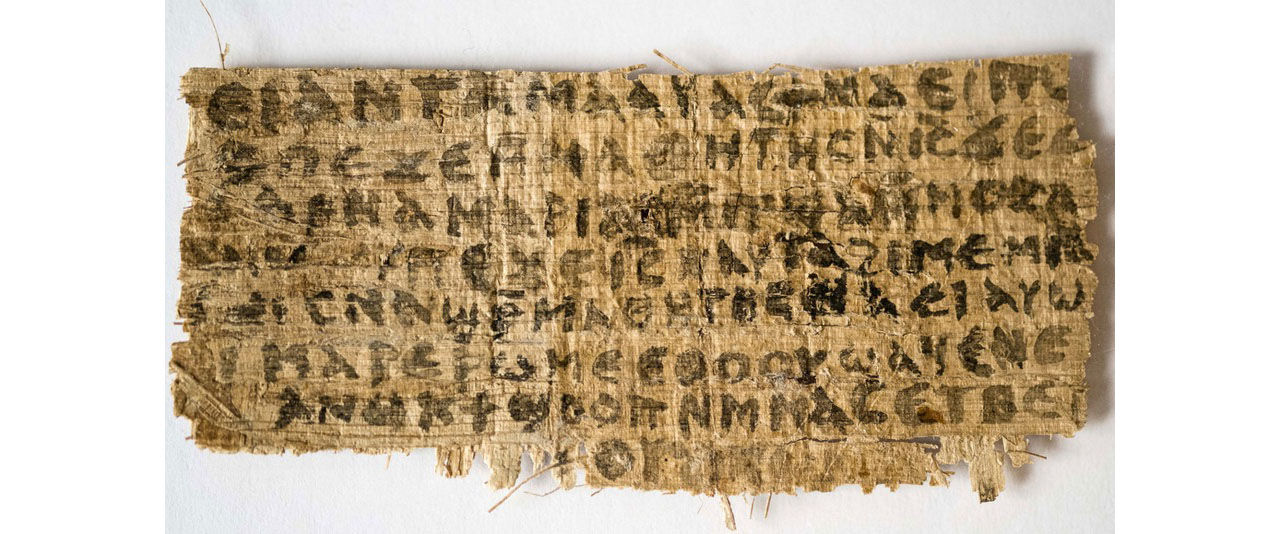 ⲉⲓ ⲁⲛ ⲧⲁⲙⲁⲁⲩ ⲁⲥϯ ⲛⲁⲉⲓ ⲡⲱ
ⲥ ⲡⲉϫⲉ ⲙⲙⲁⲑⲏⲧⲏⲥ ⲛⲓ̅ⲥ̅ ϫⲉ ⲥ
ⲁⲣⲛⲁ ⲙⲁⲣⲓⲁⲙ ⲙⲡϣⲁ ⲙⲙⲟⲥ ⲁ
ⲡⲉϫⲉ ⲓ̅ⲥ̅ ⲛⲁⲩ ⲧⲁϩⲓⲙⲉ ⲙⲛ̅
ⲥⲛⲁϣⲣ̅ⲙⲁⲑⲏⲧⲏⲥ ⲛⲁⲉⲓ ⲁⲩⲱ
ⲓ ⲙⲁⲣⲉⲣⲱⲙⲉ ⲉⲑⲟⲟⲩ ϣⲁϥⲉ ⲛⲉ
ⲁⲛⲟⲕ ϯϣⲟⲟⲡ ⲛⲙⲙⲁⲥ ⲉⲧⲃⲉ